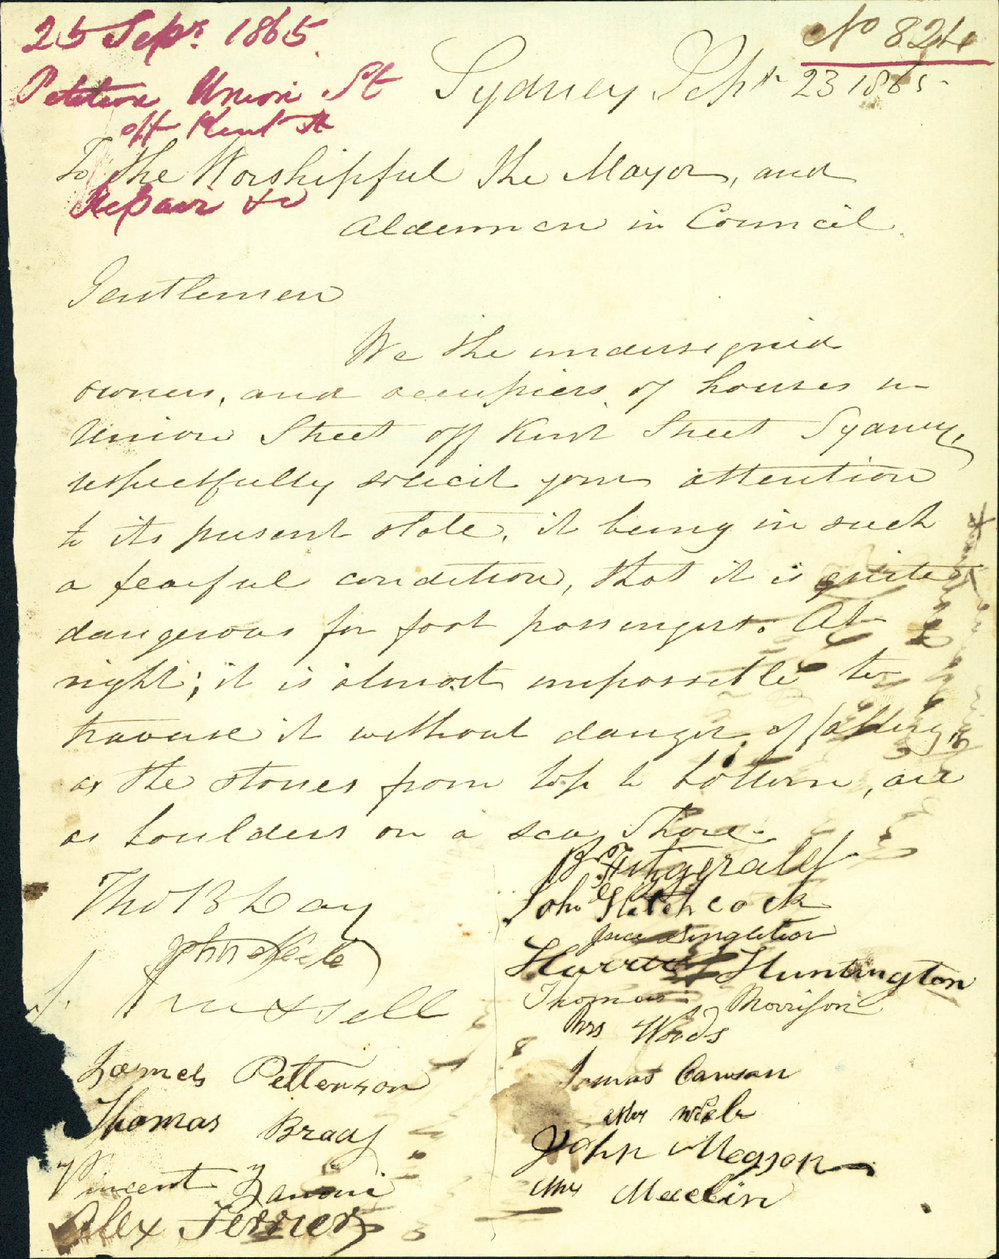 25 Sepr. 1865
No 824
Petition Union St
off Kent St
Repair &c
Sydney Sepr 23 1865
To The Worshipful The Mayor, and
Aldermen in Council.
Gentlemen
We the undersigned
owners, and occupiers of houses in
Union Street off Kent Street Sydney,
respectfully solicit your attention
to its present state, it being in such
a fearful condition, that it is quite
dangerous for foot passengers. At
night; it is almost impossible to
traverse it without danger of falling,
as the stones from top to bottom, are
as boulders on a sea, Shore.
Tho B Day
John
J. Russell
James Petterson
Thomas Brady
Vincent Zanoni
Alex Ferrier
B. Fitzgerald
John Hitchcock
Singleton
Harriet Huntington
Thomas Morrison
Mrs Woods
James Cawson
Mrs
John Megson
Mrs Maclin